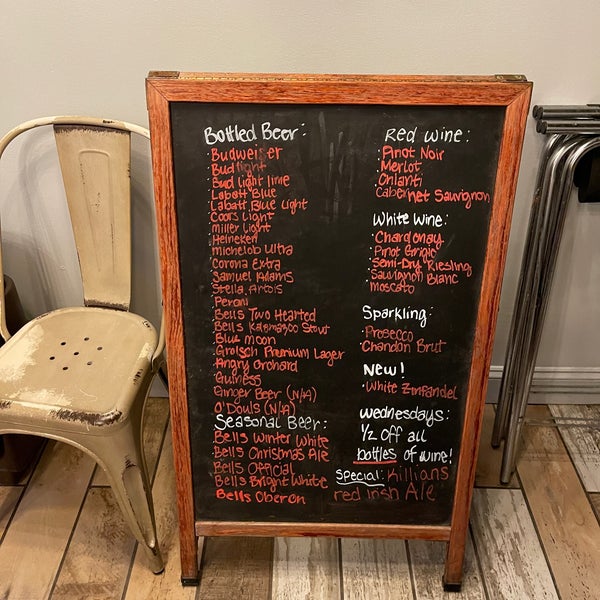 Bottled Beer:
Budweiser
Bud light
Bud light lime
Labatt Blue
Labatt Blue Light
Coors Light
miller Light
Heineken
michelob Ultra
Corona Extra
Samuel Adams
Stella Artois
Peroni
Bells Two Hearted
Bells Kalamazoo Stout
Blue moon
Grolsch Premium Lager
Angry Orchard
Guiness
Ginger Beer (N/A)
O'Douls (N/A)
Seasonal Beer:
Bells Winter White
Bells Christmas Ale
Bells Official
Bells Bright White
Bells Oberon
Red wine:
Pinot Noir
Merlot
Chianti
Cabernet Sauvignon
White Wine:
Chardonay
Pinot Grigio
Semi-Dry Riesling
Sauvignon Blanc
moscato
Sparkling:
Prosecco
Chandon Brut
New!
White Zinfandel
Wednesdays:
1/2 off all
bottles of wine!
Special: Killians
red Irish Ale